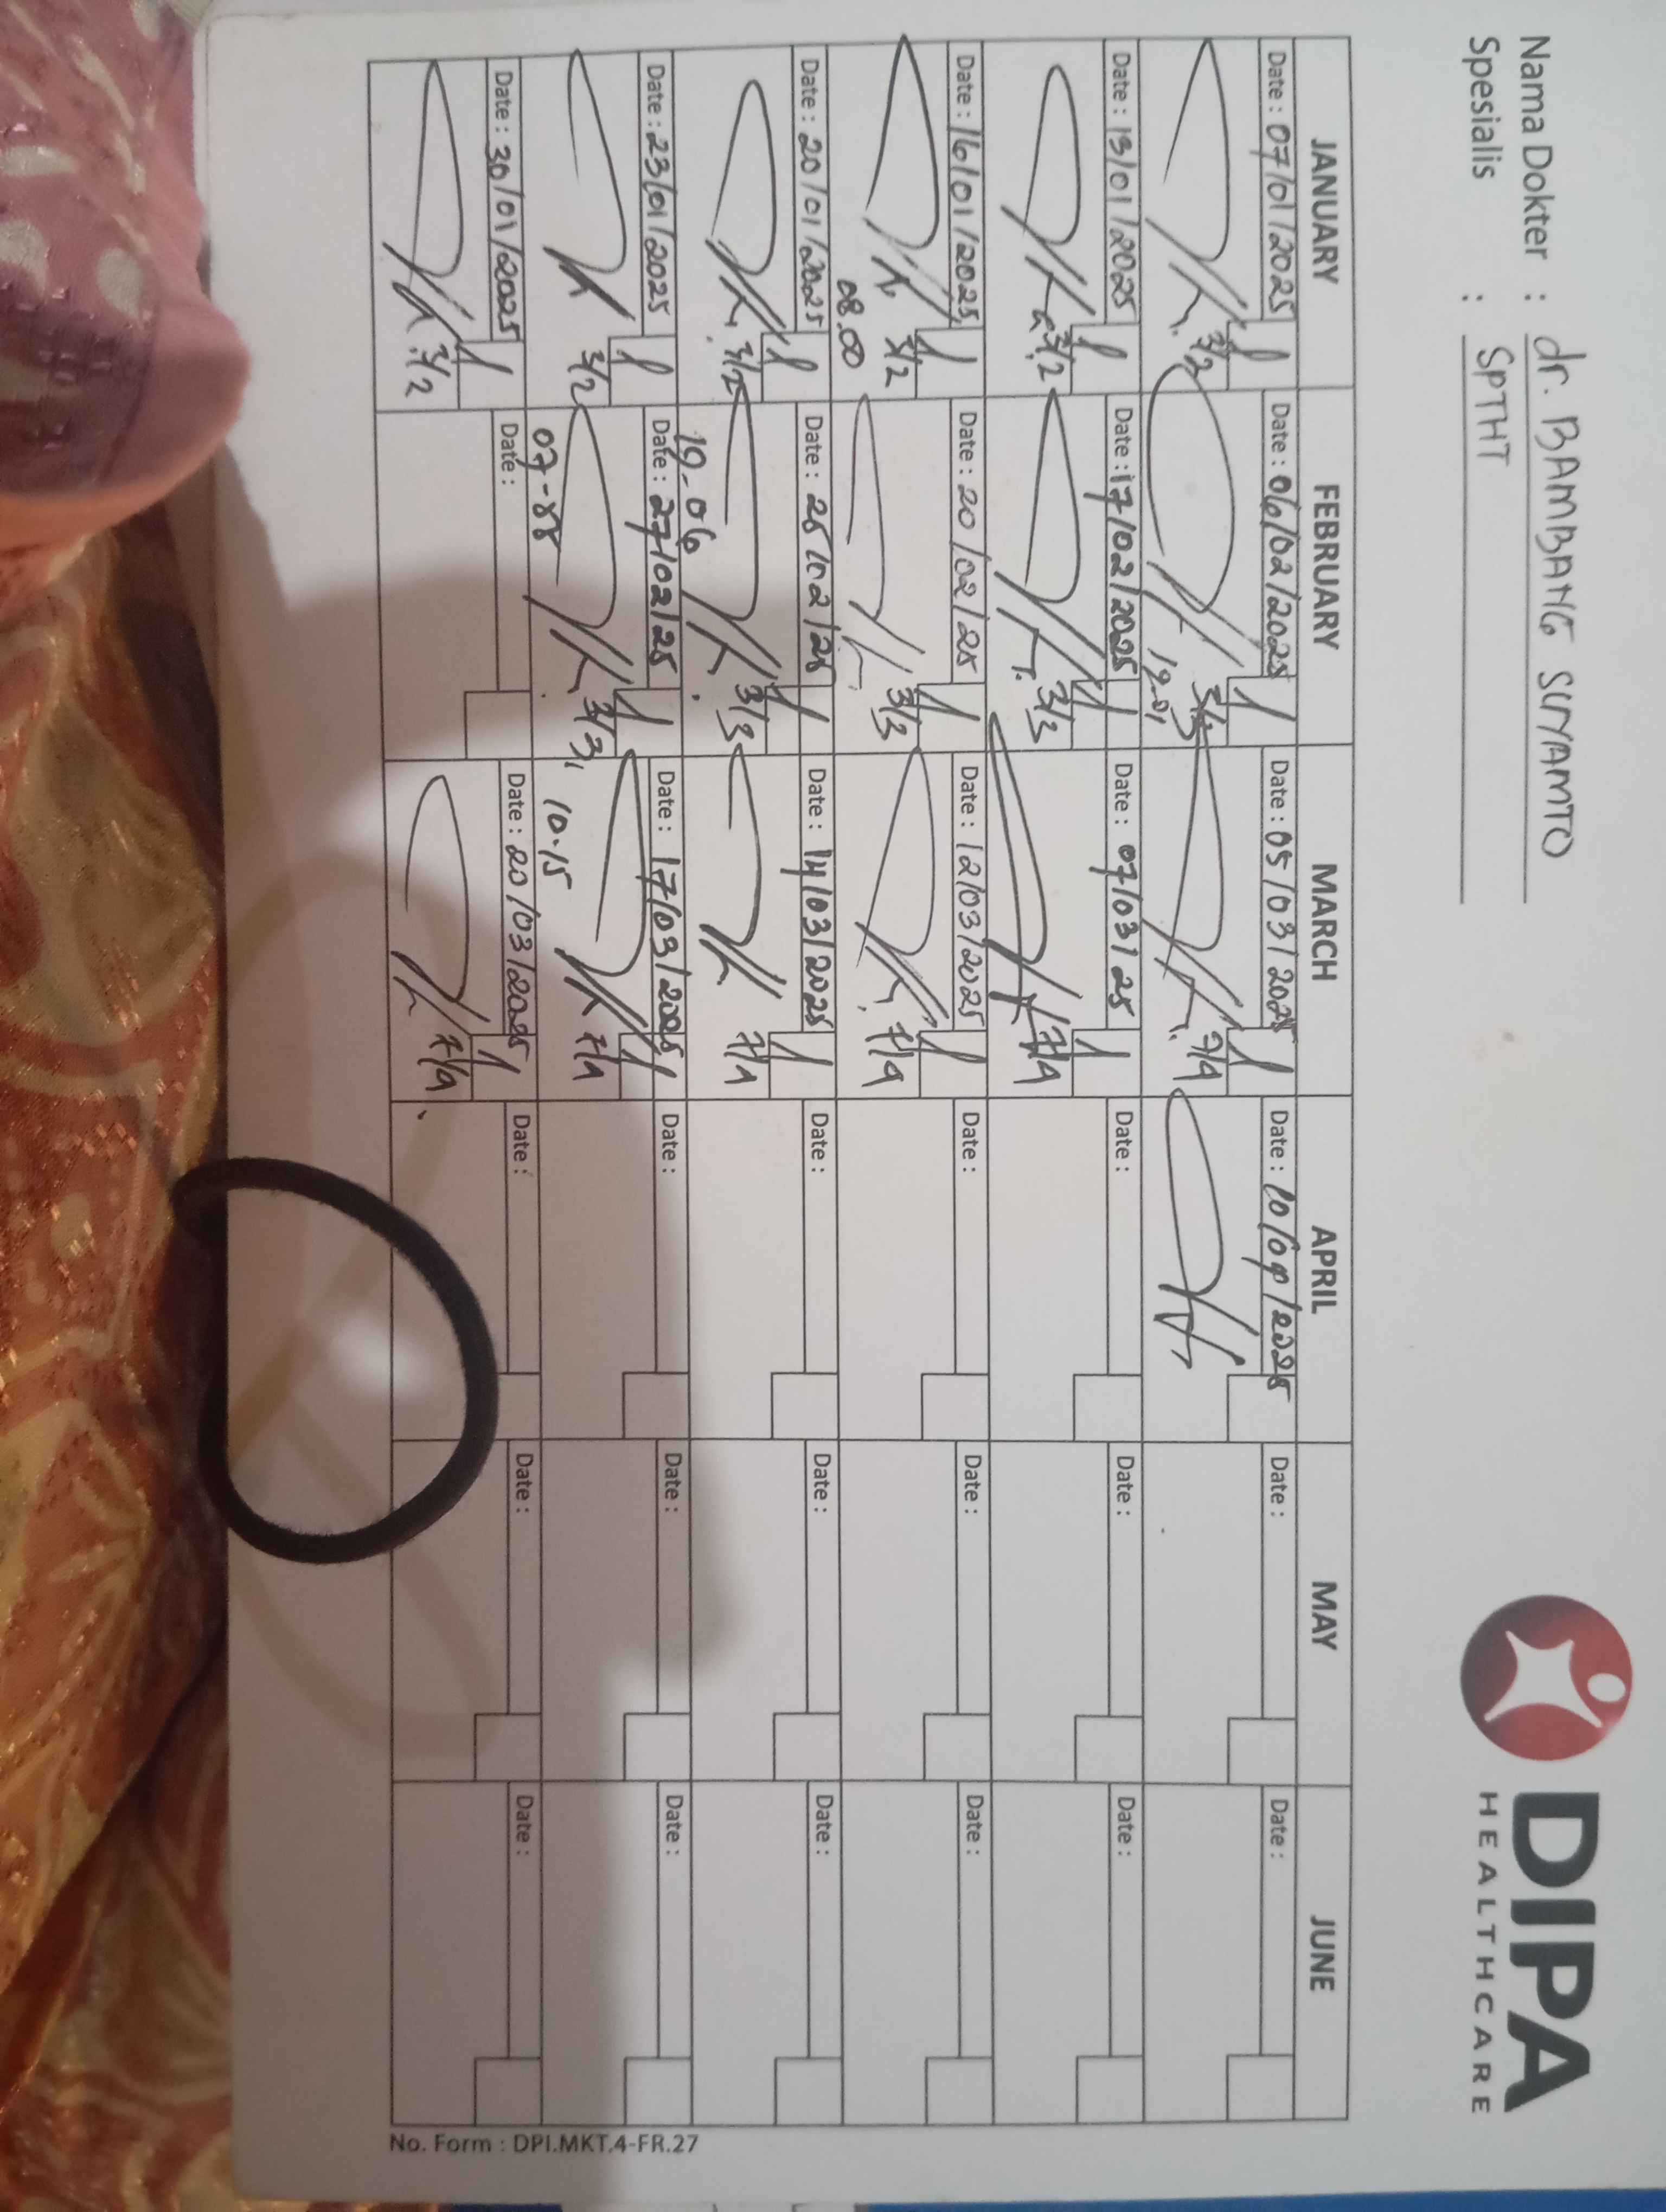 Nama Dokter : dr. BAMBANG SUYAMTO
Spesialis : SPTHT
DIPA
HEALTHCARE
JANUARY FEBRUARY MARCH APRIL MAY JUNE
Date : 07/01/2025 Date : 06/02/2025 Date : 05/03/2025 Date : 10/04/2025 Date : Date :
3/2 19.01 3/3 7/4
Date : 13/01/2025 Date : 17/02/2025 Date : 07/03/25 Date : Date : Date :
3/2 3/3 7/4
Date : 16/01/2025 Date : 20/02/25 Date : 12/03/2025 Date : Date : Date :
3/2 3/3 7/4
08.00
Date : 20/01/2025 Date : 25/02/25 Date : 14/03/2025 Date : Date : Date :
3/2 3/3 7/4
19.06
Date : 23/01/2025 Date : 27/02/25 Date : 17/03/2025 Date : Date : Date :
3/2 3/3 7/4
10.15
Date : 30/01/2025 Date : Date : 20/03/2025 Date : Date : Date :
3/2 7/4
No. Form : DPI.MKT.4-FR.27